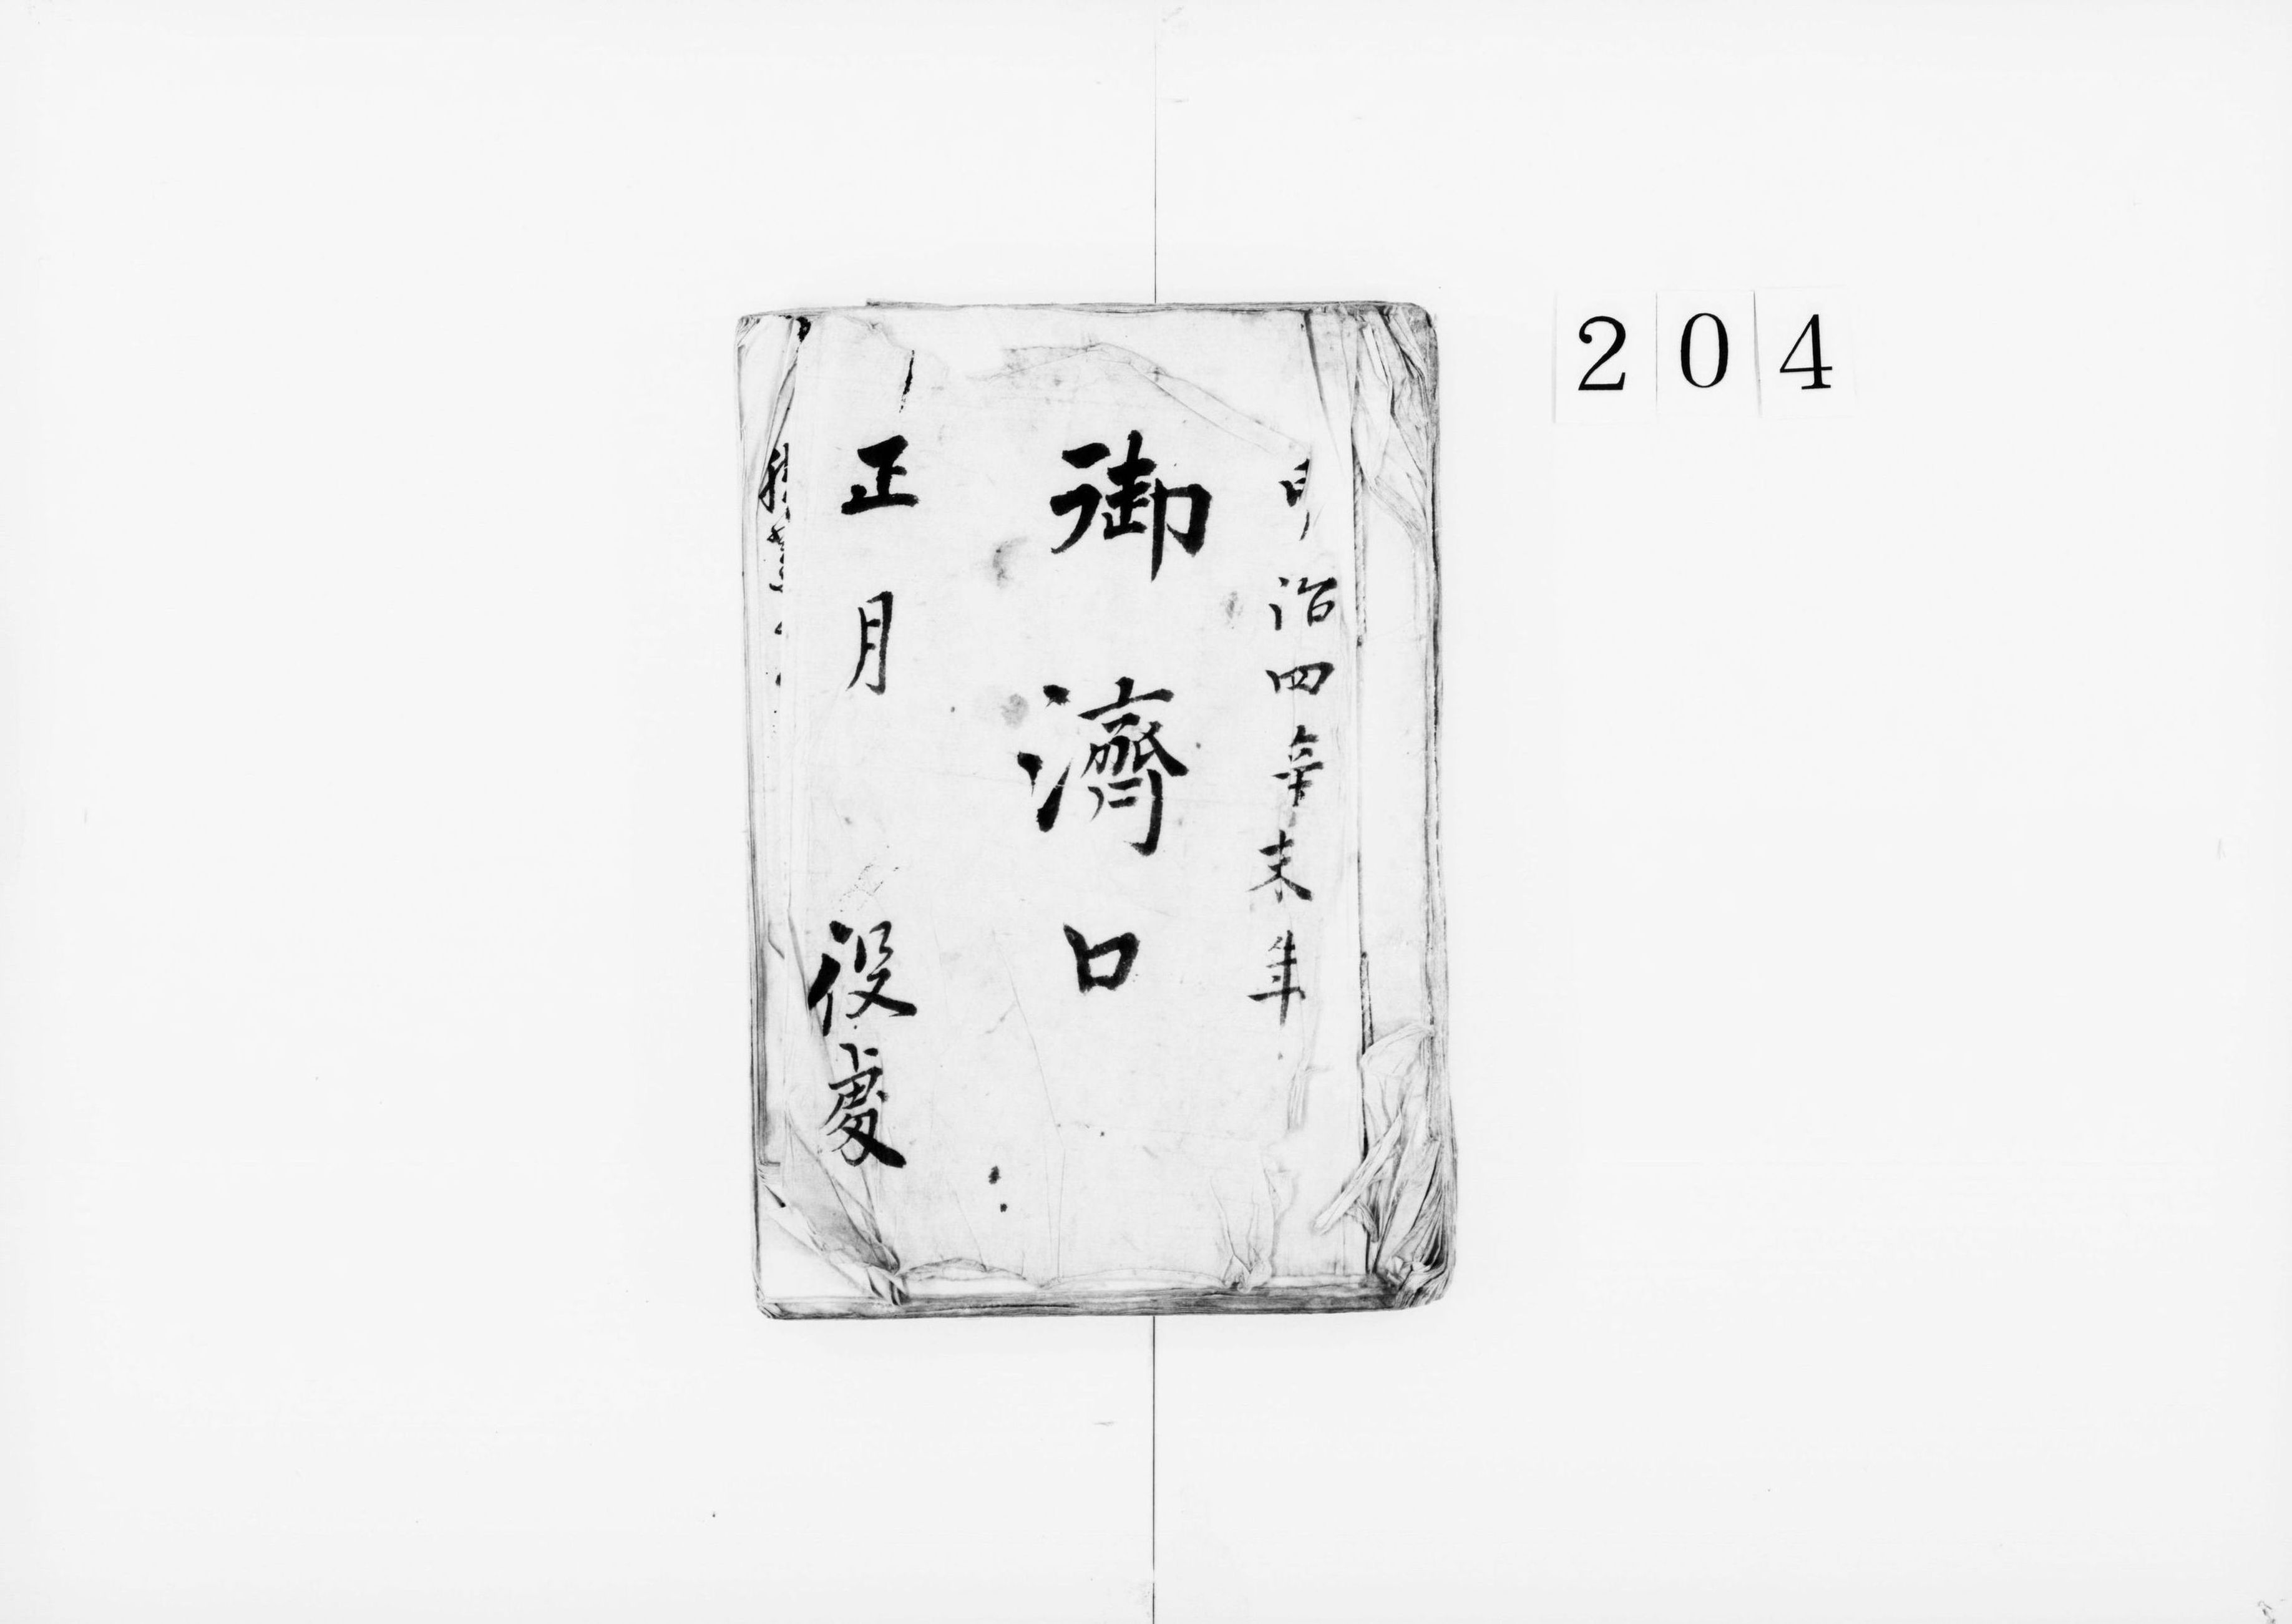 204
明治四辛未年
御濟口
正月
役處